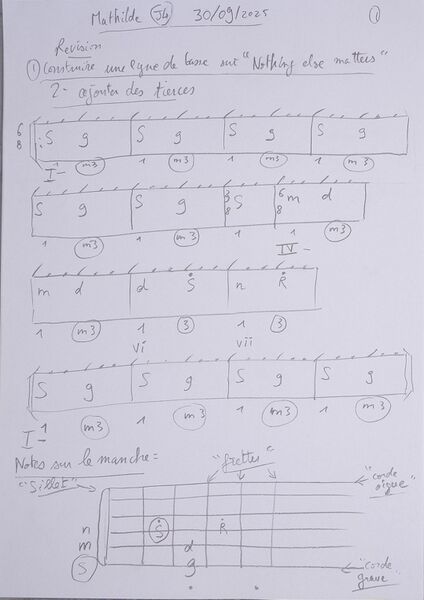 Mathilde J4 30/09/2025 1
Revision
① Construire une ligne de basse sur "Nothing else matters"
2- ajouter des tierces
6 8 S g S g S g S g
1 m3 1 m3 1 m3 1 m3
I-
S g S g 3 8 S 6 8 m d
1 m3 1 m3 1 1 m3
IV-
m d d S n R
1 m3 1 3 1 3
vi vii
S g S g S g S g
1 m3 1 m3 1 m3 1 m3
I-
Notes sur le manche =
"frettes"
"Sillet"
"corde aigue"
n S R
m d
S g
"corde grave"